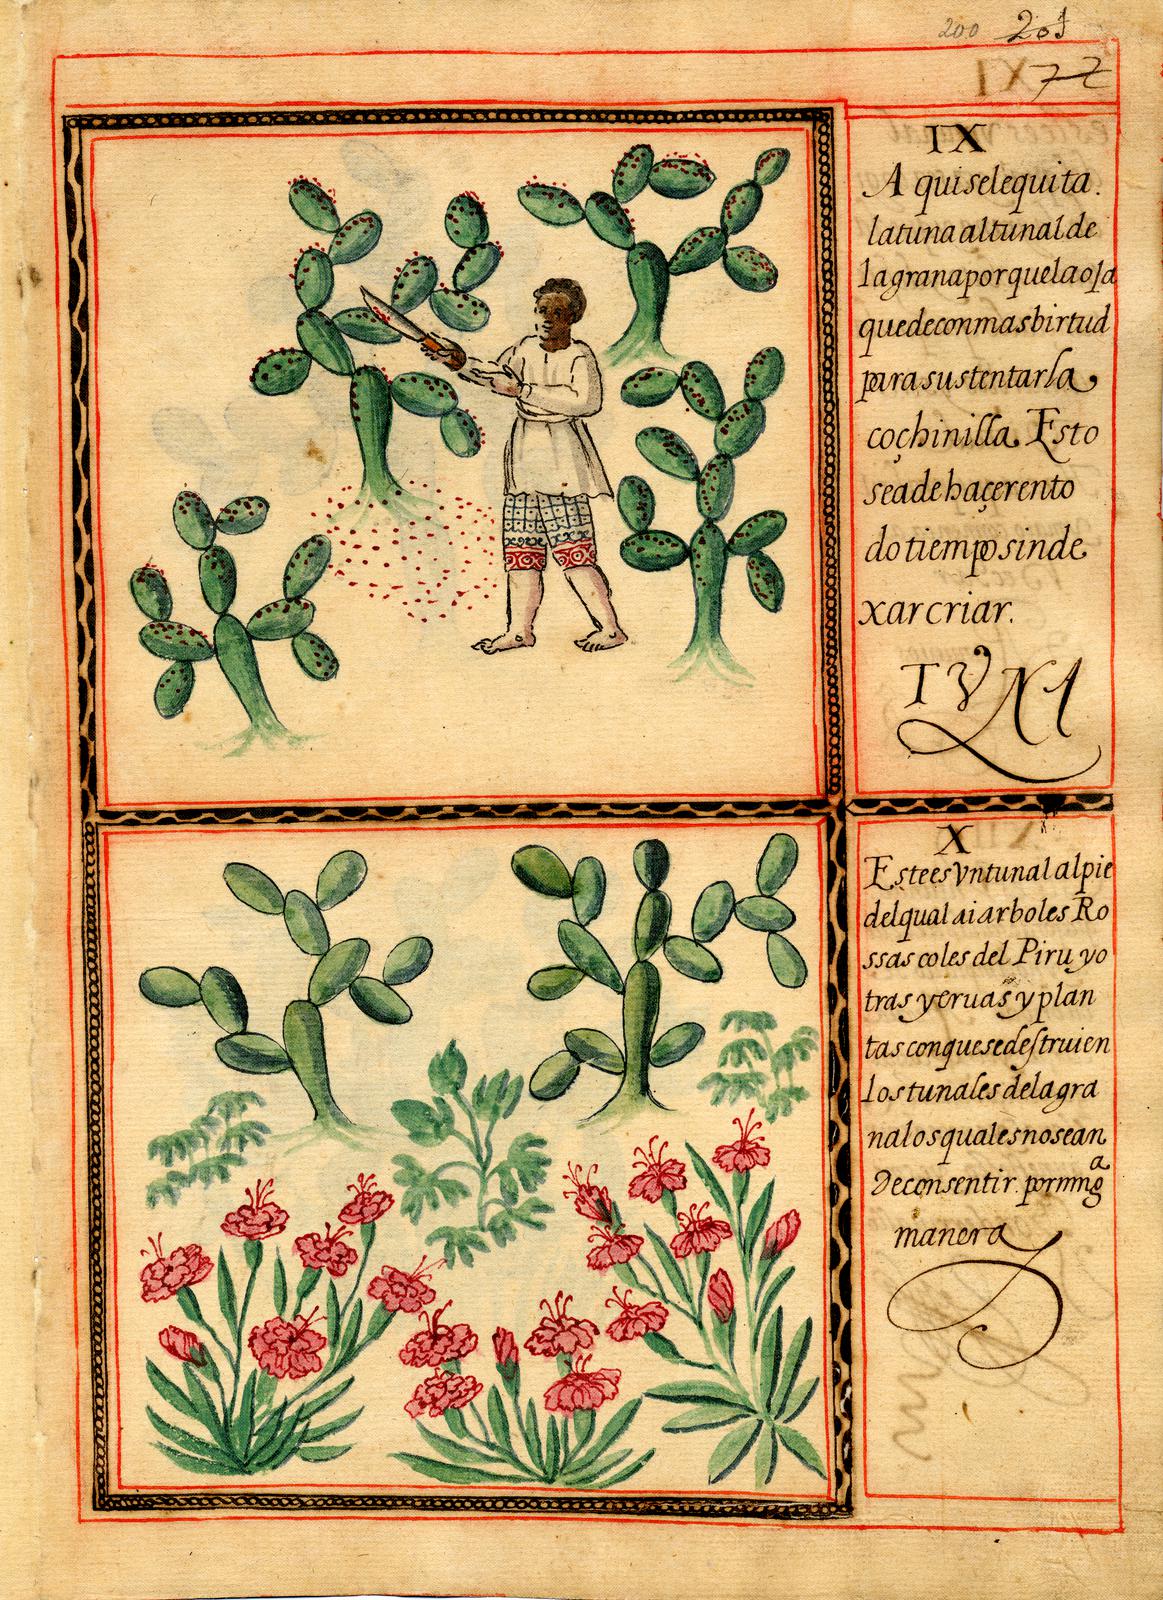 200 201
77
IX
A quiselequita.
latunaaltunalde
lagranaporquelaoja
quedeconmasbirtud
parasustentarla
coçhinilla. Esto
seadehaçerento
dotiemposinde
xarcriar.
TVNA
X
Esteesvntunalalpie
delqual ai arboles Ro
ssas coles del Piru yo
tras yeruas y plan
tasconquesedestruien
lostunalesdelagra
nalosqualesnosean
Deconsentir. porning a
manera